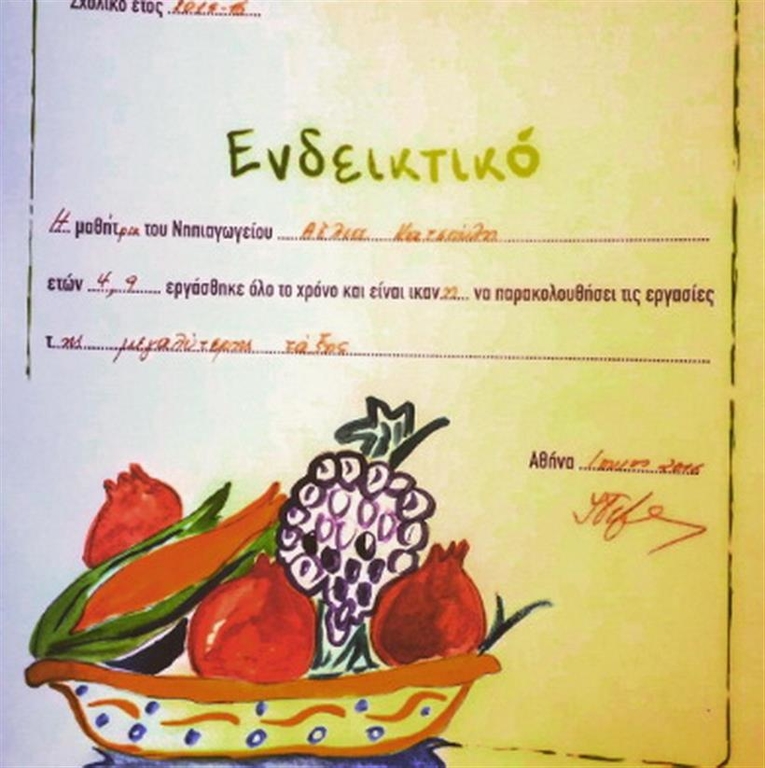 Σχολικό έτος 2015-16
Ενδεικτικό
Η μαθήτρια του Νηπιαγωγείου
ετών 4,9 εργάσθηκε όλο το χρόνο και είναι ικανη να παρακολουθήσει τις εργασίες
της μεγαλύτερης τάξης
Αθήνα 2016